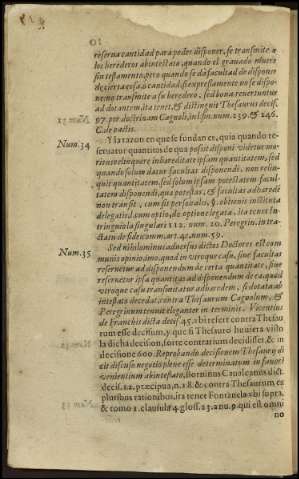 reserua cantidad para poder disponer, se transmite a
los herederos abintestato, quando el grauado muere
sin testamento, pero quando se dà facultad de disponer
de cierta cosa, ò cantidad, si expressamente no se dispo-
ne no transmite a su heredero, sed bona reuertuntur
ad dotantem, ita tenet, & distinguit Thesaurus decis.
97. per doctrinam Cagnoli, in l. fin. num. 239. & 246.
C. de pactis.
Num. 34
Y la razon en que se fundan es, quia quando re-
seruatur quantitas de qua possit disponi videtur mo-
riturus relinquere in hæreditate ipsam quantitatem, sed
quando solum datur facultas disponendi, non relin-
quit quantitatem, sed solum ipsam potestatem facul-
tatem disponendi, quæ potestas, & facultas ad hæredē
non transit, cum sit personalis, §. obtenis instituta
de legatis, l. cum optio, de optione legata, ita tenet In-
trigniola singulari 112. num. 20. Peregrin. in tra-
ctatu de fideicomm. art. 42. num. 59.
Num. 35
Sed nihilominus aduersus dictos Doctores est com-
munis opinio, quod in vtroque casu, siue facultas
reseruetur ad disponendum de certa quantitate, siue
reseruetur ipsa quantitas ad disponendum de ea, quod
vtroque casu transmitatur ad hæredem, se dotata ab
intestato decedat, contra Thesaurum Cagnolum, &
Peregrinum tenuit eleganter in terminis. Vicentius
de Franchis dicta decis. 45. vbi refert contra Thesau
rum esse decisum, y que si Thesauro huuiera visto
la dicha decision, forte contrarium decidisset & in
decisione 600. Reprobando decisionem Thesauri di
xit discusso negotio plene esse determinatum in fauorẽ
venientium ab intestato,
decis. 12. præcipuè, n. 18. & contra Thesaurum ex
pluribus rationibus, ita tenet Fontanela vbi supra,
& tomo 1. clausula 4. gloss. 23. anu. 9. qui est omni
no